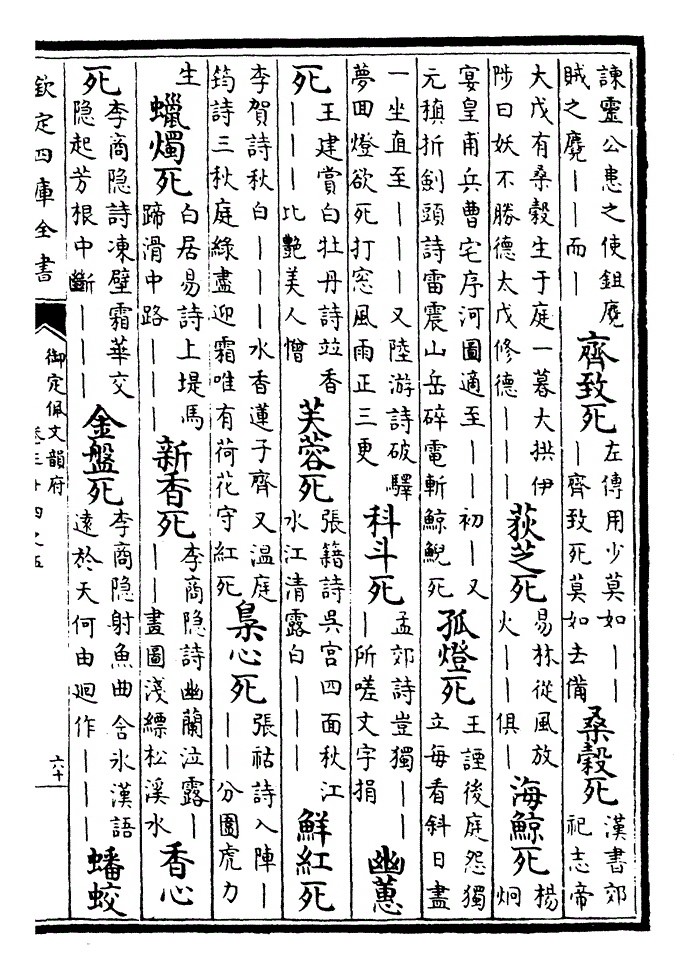 諫靈公患之使鉏麑
賊之麑｜｜而｜
齊致死
左傳用少莫如｜｜
｜齊致死莫如去備
桑穀死
漢書郊
祀志帝
大戊有桑穀生于庭一暮大拱伊
陟曰妖不勝德太戊修德｜｜｜
荻芝死
易林從風放
火｜｜俱｜
海鯨死
楊
炯
宴皇甫兵曹宅序河圖適至｜｜初｜又
元稹折劍頭詩雷震山岳碎電斬鯨鯢死
孤燈死
王諲後庭怨獨
立每看斜日盡
一坐直至｜｜｜又陸游詩破驛
夢回燈欲死打窓風雨正三更
科斗死
孟郊詩豈獨｜｜
｜所嗟文字捐
幽蕙
死
王建賞白牡丹詩竝香
｜｜｜比艷美人憎
芙蓉死
張籍詩吳宮四面秋江
水江清露白｜｜｜
鮮紅死
李賀詩秋白｜｜｜水香蓮子齊又溫庭
筠詩三秋庭綠盡迎霜唯有荷花守紅死
梟心死
張祜詩入陣｜
｜｜分圍虎力
生
蠟燭死
白居易詩上堤馬
蹄滑中路｜｜｜
新香死
李商隱詩幽蘭泣露｜
｜｜畫圖淺縹松溪水
香心
死
李商隱詩凍壁霜華交
隱起芳根中斷｜｜｜
金盤死
李商隱射魚曲含氷漢語
遠於天何由迴作｜｜｜
蟠蛟
欽定四庫全書
御定佩文韻府
卷三十四之五
六十